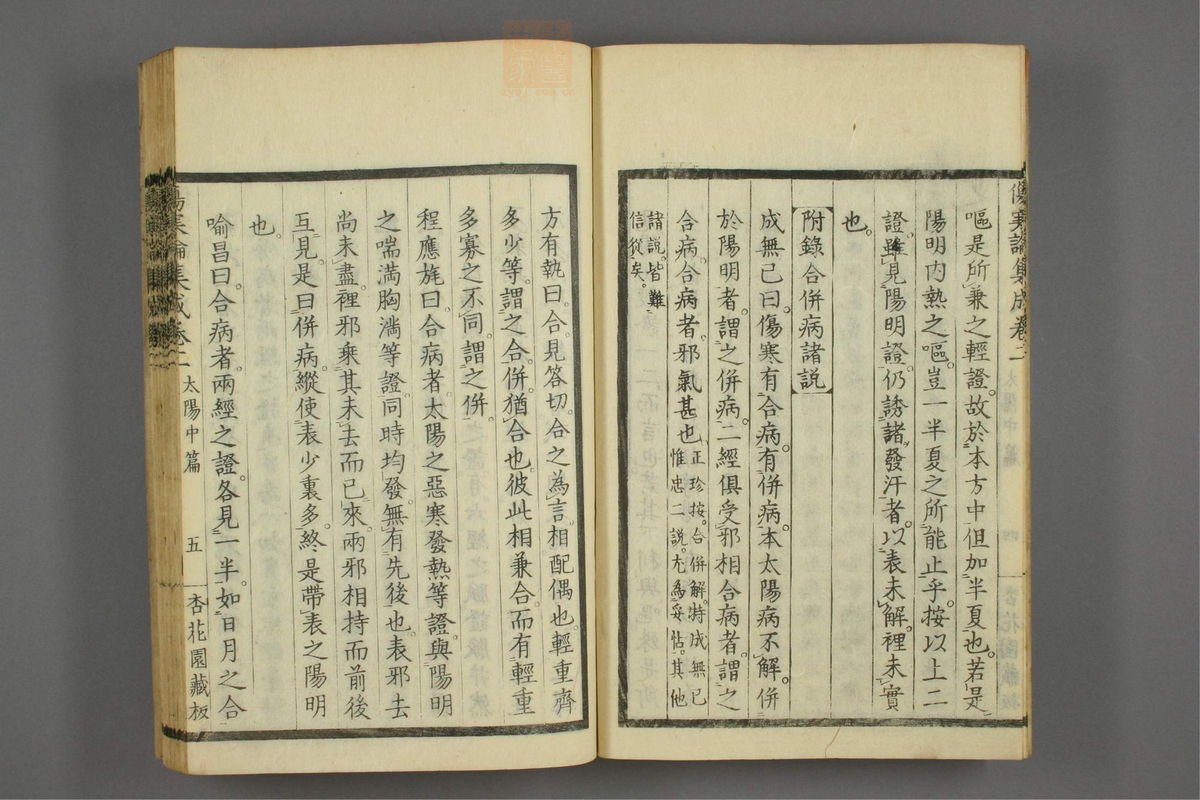 傷寒論集成卷二
嘔是所兼之輕證。故於本方中但加半夏也。若是
陽明内熱之嘔。豈一半夏之所能止乎。按以上二
證。雖見陽明證。仍誘諸發汗者。以表未解。裡未實
也。
附錄合併病諸説
成無已曰。傷寒有合病。有併病。本太陽病不解。併
於陽明者。謂之併病。二經俱受邪相合病者。謂之
合病。合病者。邪氣甚也。正珍按。合併解。特成無已
惟忠二説。尤爲妥帖。其他
諸説。皆難
信從矣。
方有執曰。合。見答切。合之為言。相配偶也。輕重齊
多少等。謂之合。併。猶合也。彼此相兼合。而有輕重
多寡之不同。謂之併。
程應旄曰。合病者。太陽之惡寒發熱等證。與陽明
之喘満胸満等證。同時均發。無有先後也。表邪去
尚未盡。裡邪乘其未去而已來。兩邪相持而前後
互見。是曰併病。縱使表少裏多。終是帶表之陽明
也。
喻昌曰。合病者。兩經之證。各見一半。如日月之合
傷寒論集成卷二
太陽中篇
五
杏花園藏板